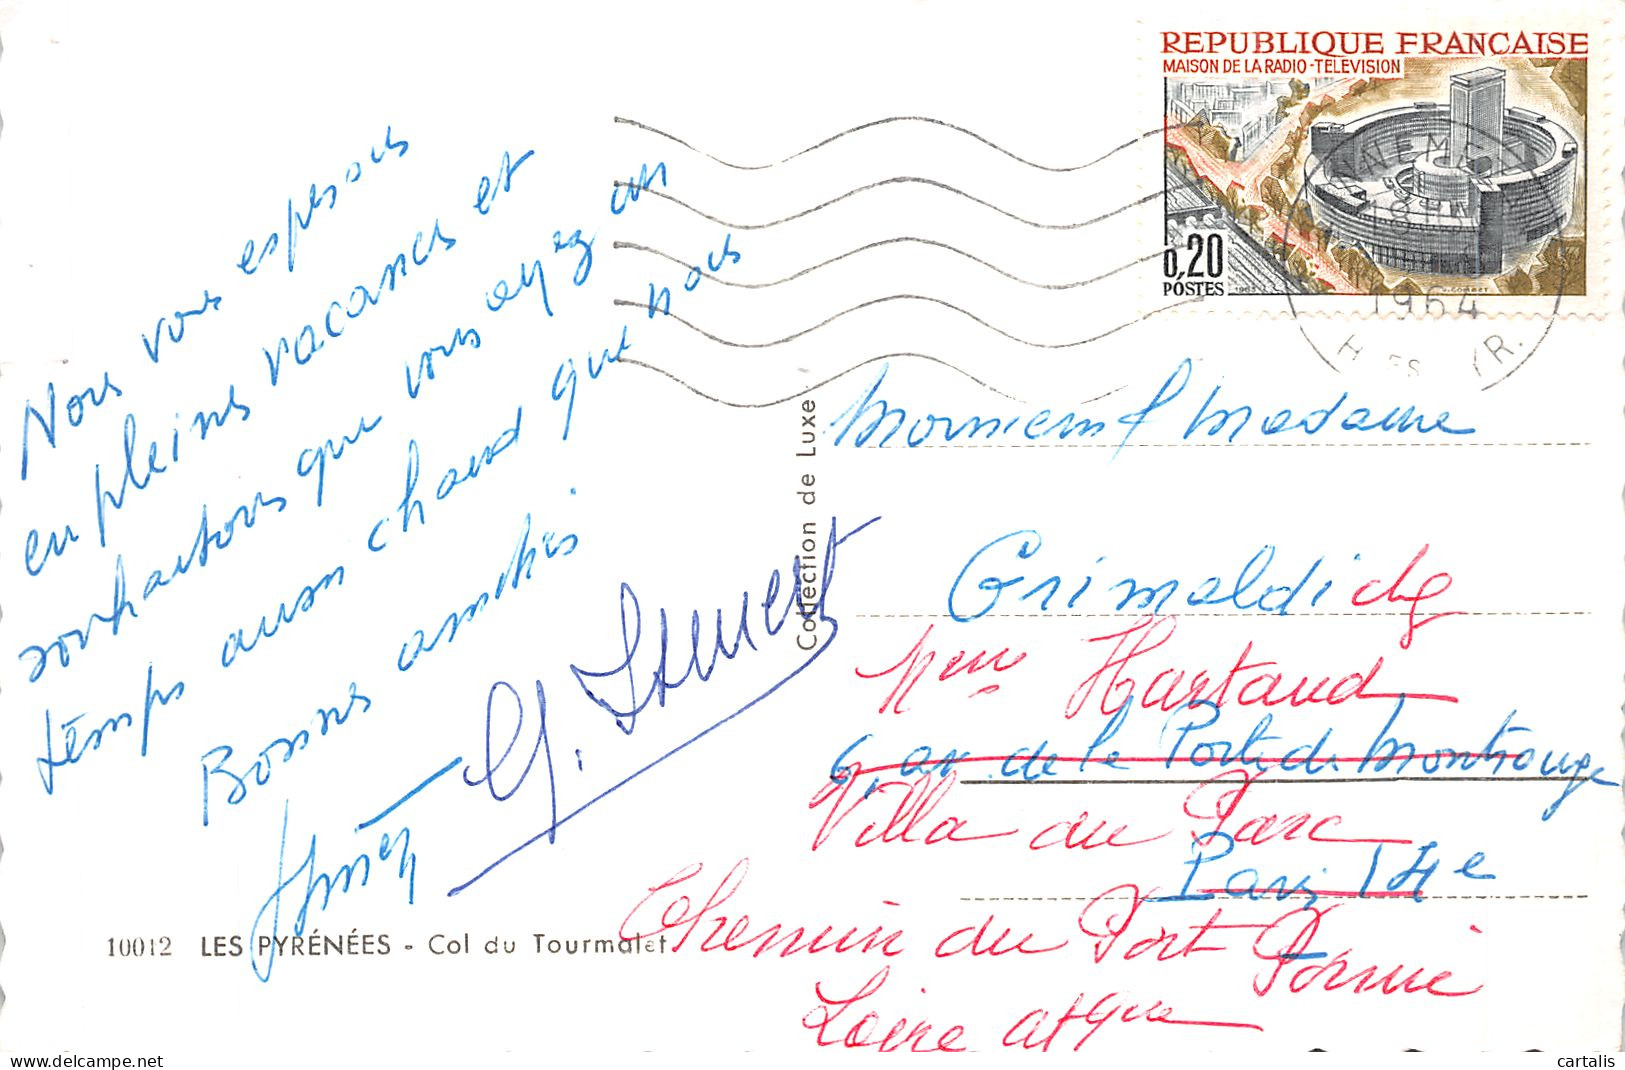 REPUBLIQUE FRANÇAISE
MAISON DE LA RADIO-TÉLÉVISION
0,20
POSTES
1964
Nous vous espérons
en pleines vacances et
souhaitons que vous ayez un
temps aussi chaud que nous
Bonnes amitiés
Collection de Luxe
Monsieur & Madame
Grimaldi chez
Mme Hartaud
6, av. de la Porte de Montrouge
Villa du Parc
Paris 14e
Chemin du Port
Pornic
Loire Atque
10012 LES PYRÉNÉES - Col du Tourmalet
cartalis